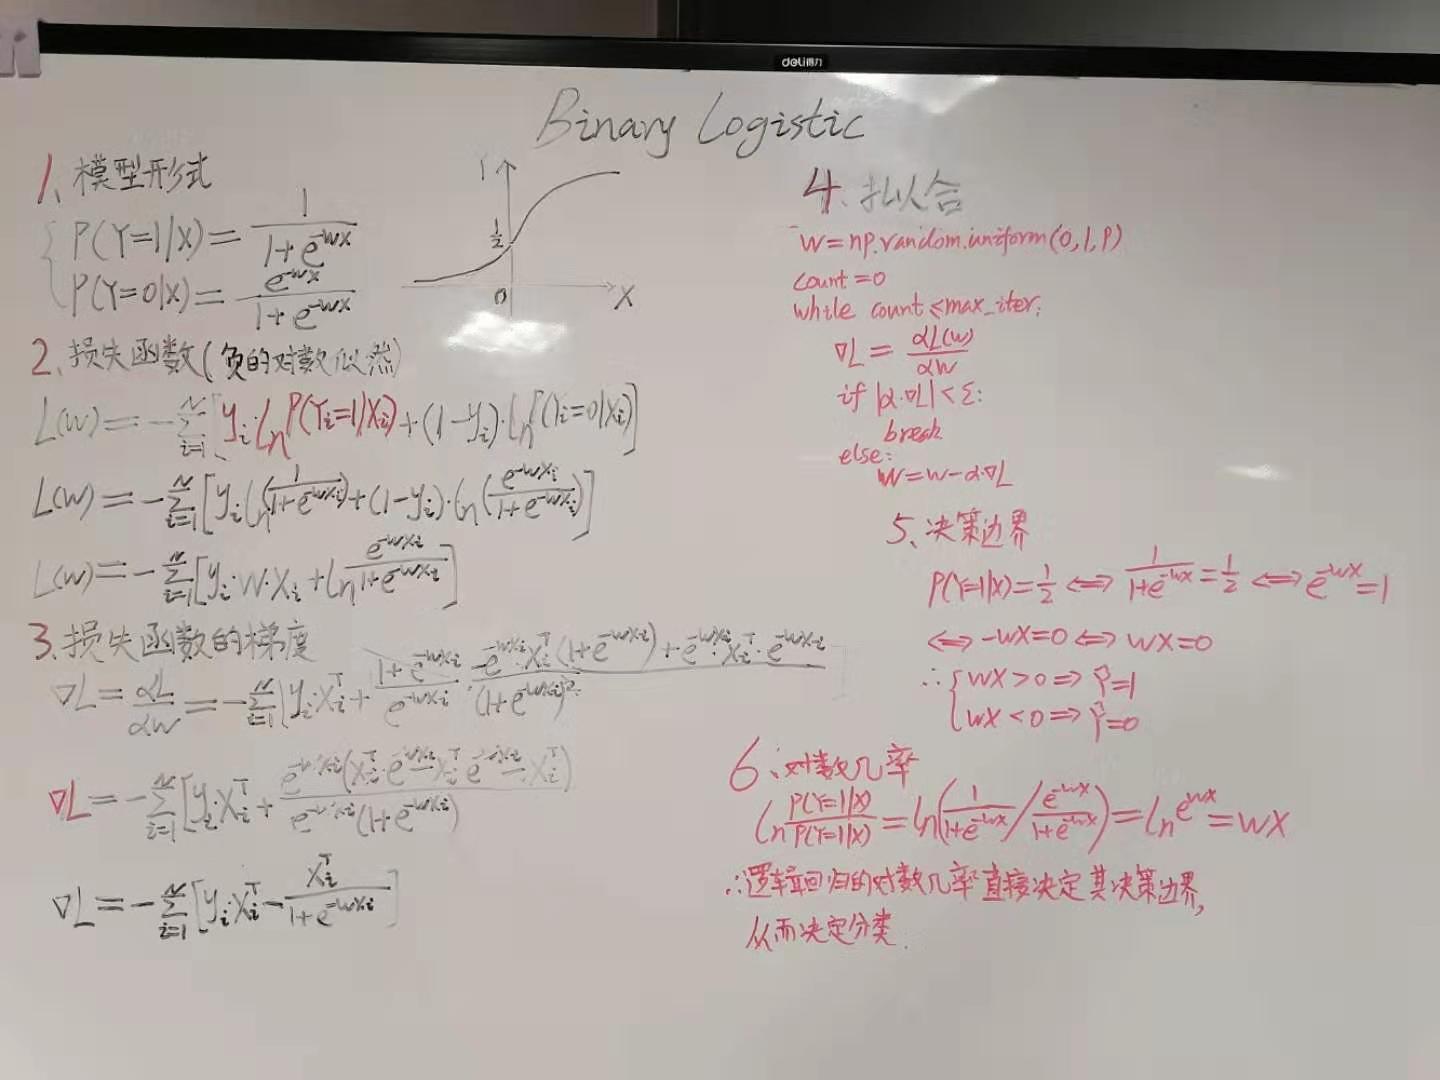 deli得力
Binary Logistic
1、模型形式
P(Y=1|X)=1/(1+e^-wx)
P(Y=0|X)=e^-wx/(1+e^-wx)
Y
1/2
0
X
2、损失函数(负的对数似然)
L(w)=-∑_{i=1}^{N}[y_i·ln P(Y_i=1|X_i)+(1-y_i)·ln P(Y_i=0|X_i)]
L(w)=-∑_{i=1}^{N}[y_i ln(1/(1+e^-wx_i))+(1-y_i)·ln(e^-wx_i/(1+e^-wx_i))]
L(w)=-∑_{i=1}^{N}[y_i·w·x_i+ln e^-wx_i/(1+e^-wx_i)]
3、损失函数的梯度
∇L=αL/αw=-∑_{i=1}^{N}[y_i·x_i^T+(1+e^-wx_i)/e^-wx_i·(-e^-wx_i·x_i^T(1+e^-wx_i)+e^-wx_i·x_i^T·e^-wx_i)/(1+e^-wx_i)^2]
∇L=-∑_{i=1}^{N}[y_i·x_i^T+e^-wx_i(x_i^T·e^-wx_i-x_i^T e^-wx_i-x_i^T)/(e^-wx_i(1+e^-wx_i))]
∇L=-∑_{i=1}^{N}[y_i x_i^T-x_i^T/(1+e^-wx_i)]
4、拟合
w=np.random.uniform(0,1,p)
count=0
while count≤max_iter:
∇L=αL(w)/αw
if |α·∇L|<ε:
break
else:
w=w-α·∇L
5、决策边界
P(Y=1|X)=1/2⇔1/(1+e^-wx)=1/2⇔e^-wx=1
⇔-wx=0⇔wx=0
∴{wx>0⇒Ŷ=1
wx<0⇒Ŷ=0
6、对数几率
ln P(Y=1|X)/P(Y=1|X)=ln(1/(1+e^-wx)/e^-wx/(1+e^-wx))=ln e^wx=wx
∴逻辑回归的对数几率直接决定其决策边界,
从而决定分类.